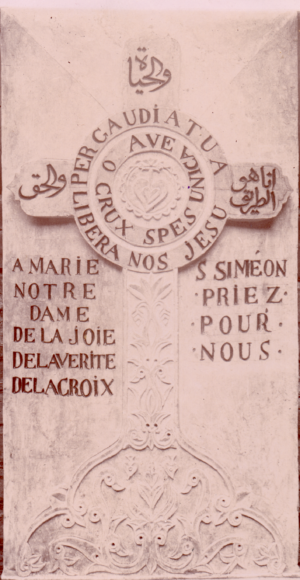 والحياة
انا هو
الطريق
والحق
PER GAUDIA TUA LIBERA NOS JESU
O AVE CRUX SPES UNICA
A MARIE
NOTRE
DAME
DE LA JOIE
DE LA VERITE
DE LA CROIX
S SIMÉON
· PRIEZ ·
· POUR ·
· NOUS ·